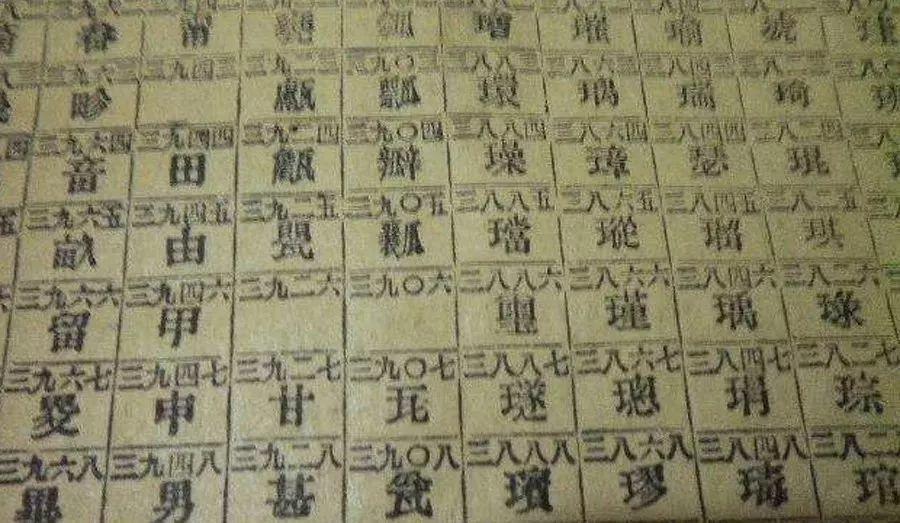 畚 甯 璀 琥
三九六三 三九四三 三九二三 三九〇三 三八八三 三八六三 三八四三 三八二三
畛 甗 瓢 環 瑪 瑞 琦
三九六四 三九四四 三九二四 三九〇四 三八八四 三八六四 三八四四 三八二四
畜 田 瓣 璪 璋 瑟 琨
三九六五 三九四五 三九二五 三九〇五 三八八五 三八六五 三八四五 三八二五
畝 由 甖 瓤 璫 瑽 瑙 琪
三九六六 三九四六 三九二六 三九〇六 三八八六 三八六六 三八四六 三八二六
留 甲 璽 瑾 瑀 琭
三九六七 三九四七 三九二七 三九〇七 三八八七 三八六七 三八四七 三八二七
畟 申 甘 瓦 璲 璁 瑁 琮
三九六八 三九四八 三九二八 三九〇八 三八八八 三八六八 三八四八 三八二
畢 男 甚 瓮 璆 琯